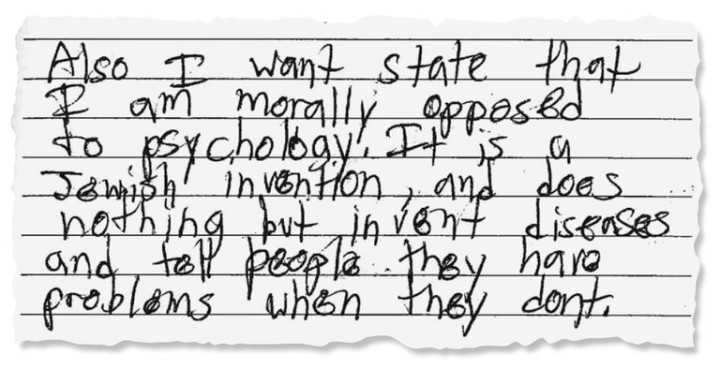 Also I want state that
I am morally opposed
to psychology. It is a
Jewish invention, and does
nothing but invent diseases
and tell people they have
problems when they dont.